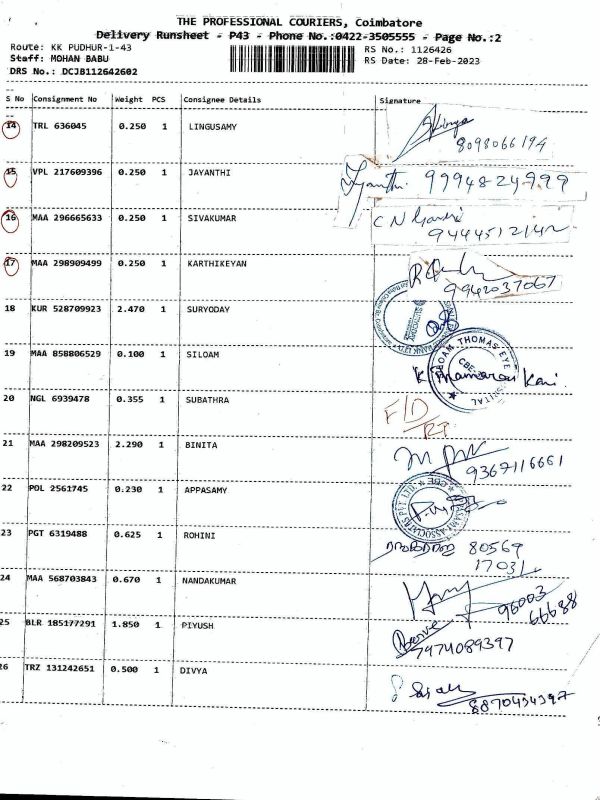 THE PROFESSIONAL COURIERS, Coimbatore
Delivery Runsheet - P43 - Phone No.:0422-3505555 - Page No.:2
Route: KK PUDHUR-1-43 RS No.: 1126426
Staff: MOHAN BABU RS Date: 28-Feb-2023
DRS No.: DCJB112642602
S No Consignment No Weight PCS Consignee Details Signature
14 TRL 636045 0.250 1 LINGUSAMY
8098066194
15 VPL 217609396 0.250 1 JAYANTHI Jayanthi. 99948-24999
16 MAA 296665633 0.250 1 SIVAKUMAR
9444512142
17 MAA 298909499 0.250 1 KARTHIKEYAN
9942037067
18 KUR 528709923 2.470 1 SURYODAY
19 MAA 858806529 0.100 1 SILOAM THOMAS EYE HOSPITAL CBE
20 NGL 6939478 0.355 1 SUBATHRA F/D
21 MAA 298209523 2.290 1 BINITA
9367116661
22 POL 2561745 0.230 1 APPASAMY
23 PGT 6319488 0.625 1 ROHINI 80569
24 MAA 568703843 0.670 1 NANDAKUMAR 96003
66688
25 BLR 185177291 1.850 1 PIYUSH
7974089397
26 TRZ 131242651 0.500 1 DIVYA